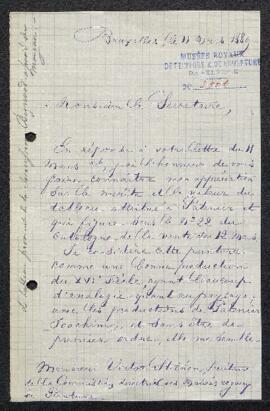 Bruxelles, le 11 Avril 1889
MUSÉES ROYAUX
DE PEINTURE & DE SCULPTURE
DE BELGIQUE
Monsieur le Secrétaire,
En réponse à votre lettre du 11
Mars, j'ai l'honneur de vous
faire connaître mon appréciation
sur le mérite et la valeur du
tableau attribué à Patenier et
qui figure sous le N° 22 du
Catalogue de la vente du 12 Mars
Je considère cette peinture
comme une bonne production
du XVIe Siècle, ayant beaucoup
d'analogie, quant au paysage,
avec les productions de Patenier
Joachim, et sans être de
premier ordre, elle me semble
Monsieur Victor Stiénon, secrétaire
de la Commission directrice des Musées royaux
de Peinture